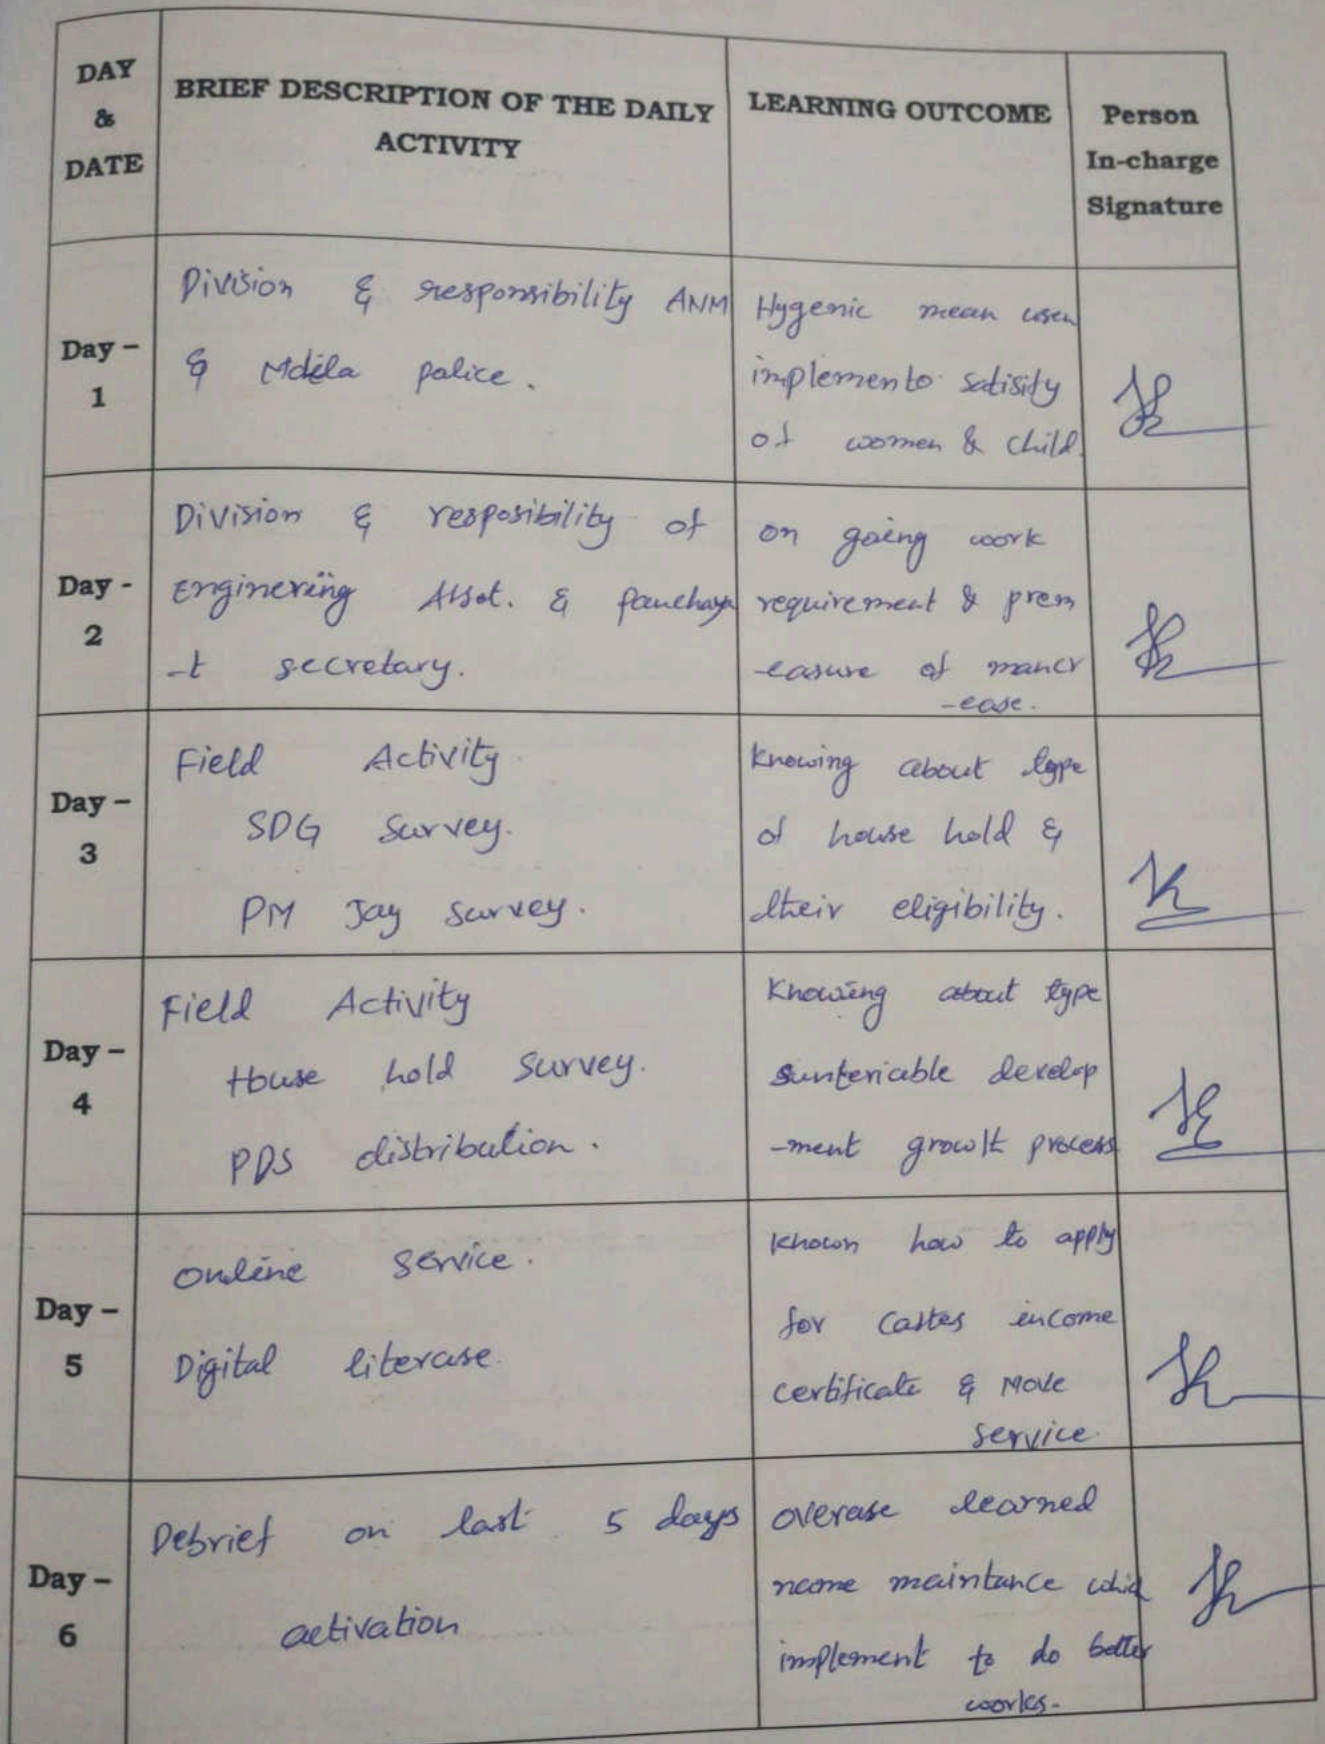 DAY
&
DATE
BRIEF DESCRIPTION OF THE DAILY
ACTIVITY
LEARNING OUTCOME
Person
In-charge
Signature
Day –
1
Division & responsibility ANM
& police.
Hygenic mean
implemento satisity
of women & child.
Day -
2
Division & resposibility of
Enginering Asst. & panchaya
-t secretary.
on going work
requirement & prem
-easure of mancr
-ease.
Day –
3
Field Activity.
SDG Survey.
PM Jay Survey.
Knowing about type
of house hold &
their eligibility.
Day –
4
Field Activity
House hold Survey.
PDS distribution.
Knowing about type
develop
-ment growlt process
Day –
5
online service.
Digital literase.
Known how to apply
for Castes income
certificate & More
service.
Day –
6
Debrief on last 5 days
activation
overase learned
maintance
implement to do better
works.